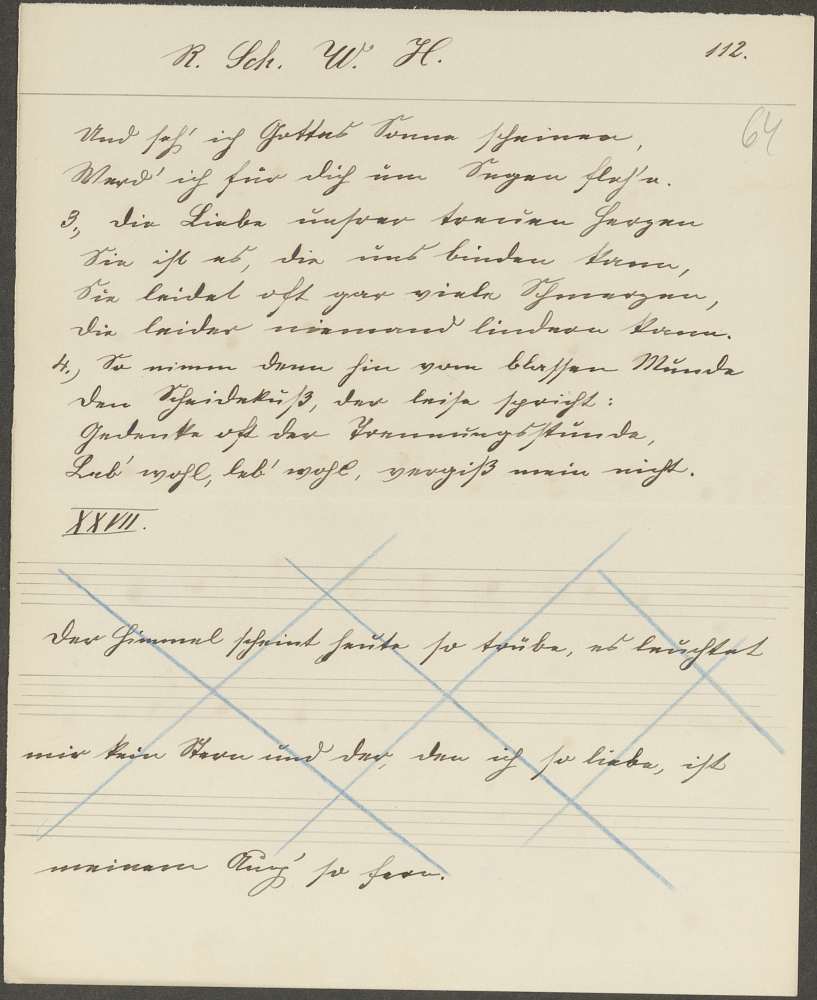 R. Sch. W. H.
112.
64
Und seh' ich Gottes Sonne scheinen,
Werd' ich für dich um Segen fleh'n.
3., Die Liebe unsrer treuen Herzen
Sie ist es, die uns binden kann,
Sie leidet oft gar viele Schmerzen,
Die leider niemand lindern kann.
4., So nimm denn hin vom blassen Munde
Den Scheidekuß, der leise spricht:
Gedenke oft der Trennungsstunde,
Leb' wohl, leb' wohl, vergiß mein nicht.
XXVII.
Der Himmel scheint heute so trübe, es leuchtet
mir kein Stern und der, den ich so liebe, ist
meinem Aug' so fern.